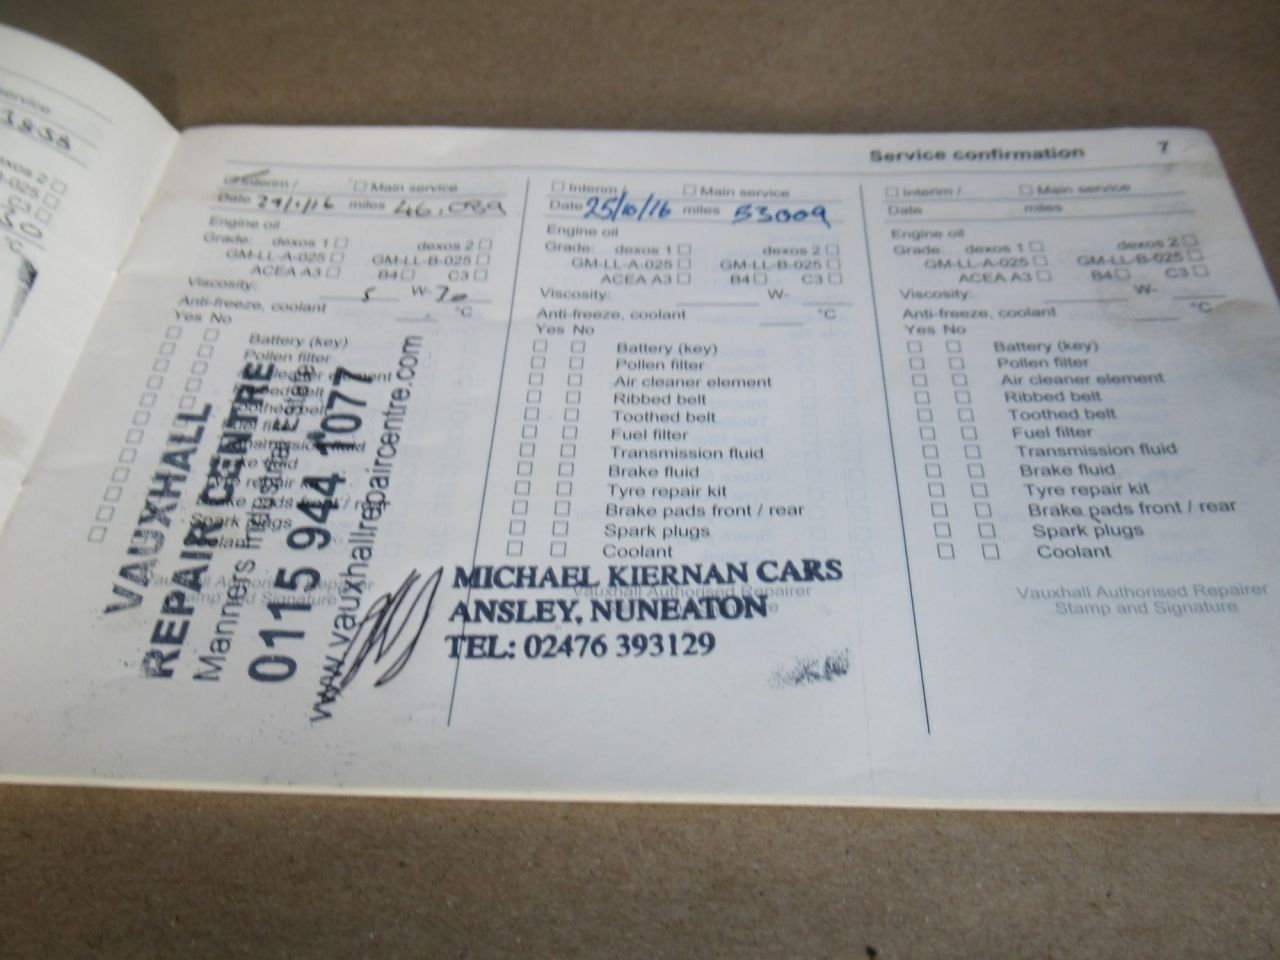 ervice
Service confirmation 7
Interim / Main service
Date 29/1/16 miles 46,039
Engine oil
Grade: dexos 1 dexos 2
GM-LL-A-025 GM-LL-B-025
ACEA A3 B4 C3
Viscosity: 5 W-
Anti-freeze, coolant °C
Yes No
Battery (key)
Pollen filter
VAUXHALL
REPAIR CENTRE
Manners Industrial Estate
0115 944 1077
www.vauxhallrepaircentre.com
Interim / Main service
Date 25/10/16 miles 53009
Engine oil
Grade: dexos 1 dexos 2
GM-LL-A-025 GM-LL-B-025
ACEA A3 B4 C3
Viscosity: W-
Anti-freeze, coolant °C
Yes No
Battery (key)
Pollen filter
Air cleaner element
Ribbed belt
Toothed belt
Fuel filter
Transmission fluid
Brake fluid
Tyre repair kit
Brake pads front / rear
Spark plugs
Coolant
Vauxhall Authorised Repairer
MICHAEL KIERNAN CARS
ANSLEY, NUNEATON
TEL: 02476 393129
Interim / Main service
Date miles
Engine oil
Grade: dexos 1 dexos 2
GM-LL-A-025 GM-LL-B-025
ACEA A3 B4 C3
Viscosity: W-
Anti-freeze, coolant °C
Yes No
Battery (key)
Pollen filter
Air cleaner element
Ribbed belt
Toothed belt
Fuel filter
Transmission fluid
Brake fluid
Tyre repair kit
Brake pads front / rear
Spark plugs
Coolant
Vauxhall Authorised Repairer
Stamp and Signature